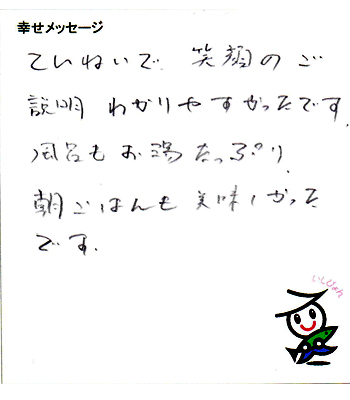 幸せメッセージ
ていねいで 笑顔のご
説明 わかりやすかったです
風呂もお湯たっぷり
朝ごはんも美味しかった
です.